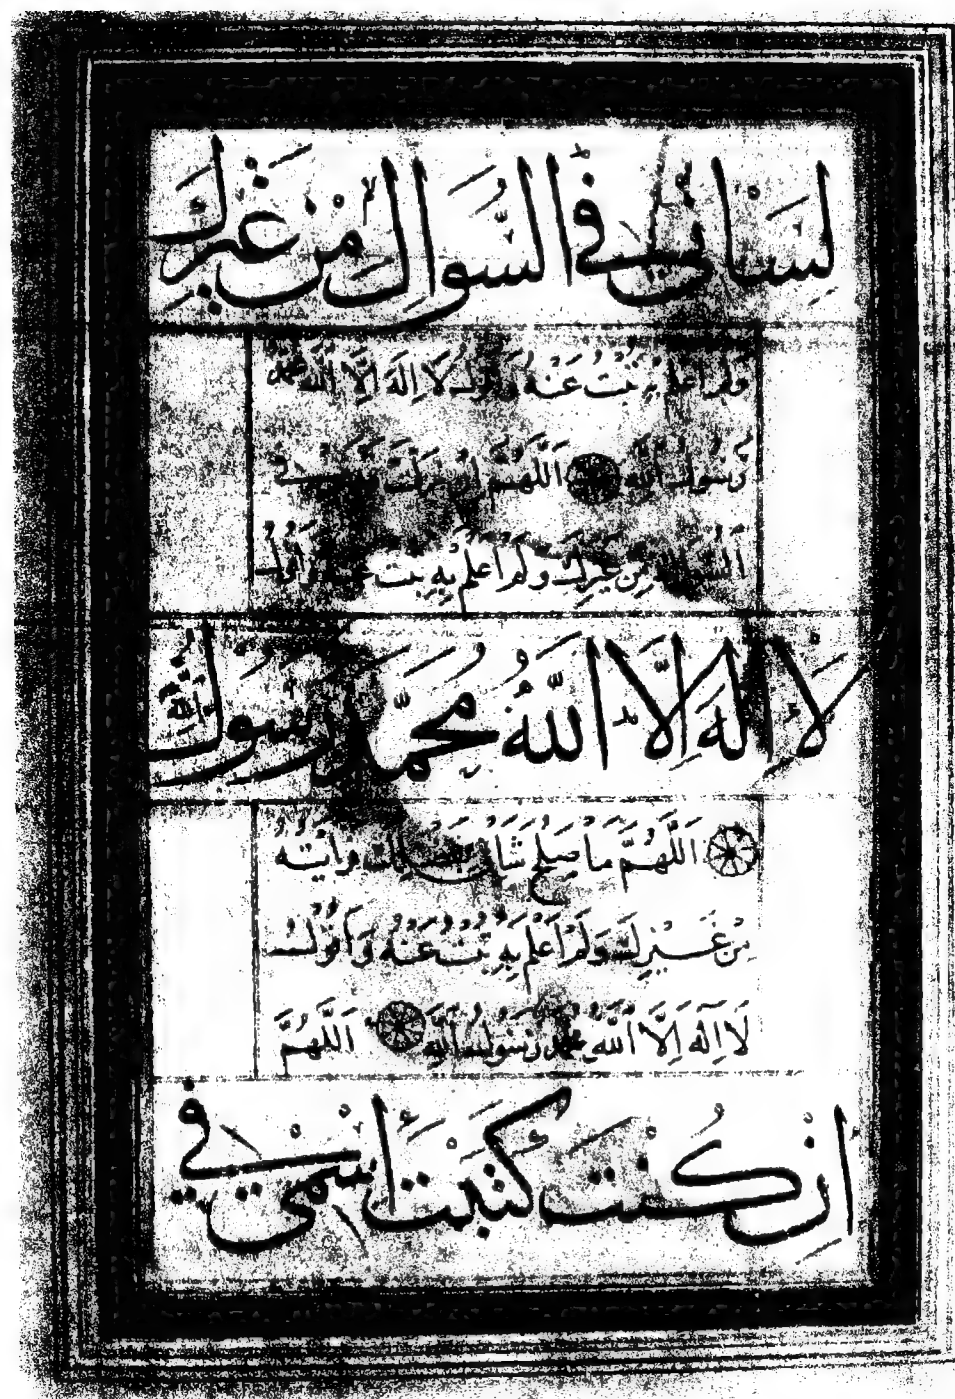 لِسَانِي فِي السُّوَالِ مِنْ غَيْرِكَ
وَلَمْ اَعْلَمْ بِهِ تُبْتُ عَنْهُ وَاَقُولُ لَا اِلَهَ اِلَّا اللَّهُ مُحَمَّدٌ
رَسُولُ اللَّهِ اَللَّهُمَّ اِنْ فِي
مِنْ غَيْرِكَ وَلَمْ اَعْلَمْ بِهِ تُبْتُ عَنْهُ وَاَقُولُ
لَا اِلَهَ اِلَّا اللَّهُ مُحَمَّدٌ رَسُولُ اللَّهِ
اَللَّهُمَّ مَا صَلُحَ شَأْنِي وَرَأَيْتُهُ
مِنْ غَيْرِكَ وَلَمْ اَعْلَمْ بِهِ تُبْتُ عَنْهُ وَاَقُولُ
لَا اِلَهَ اِلَّا اللَّهُ مُحَمَّدٌ رَسُولُ اللَّهِ اَللَّهُمَّ
اِنْ كُنْتَ كَتَبْتَ اسْمِي فِي